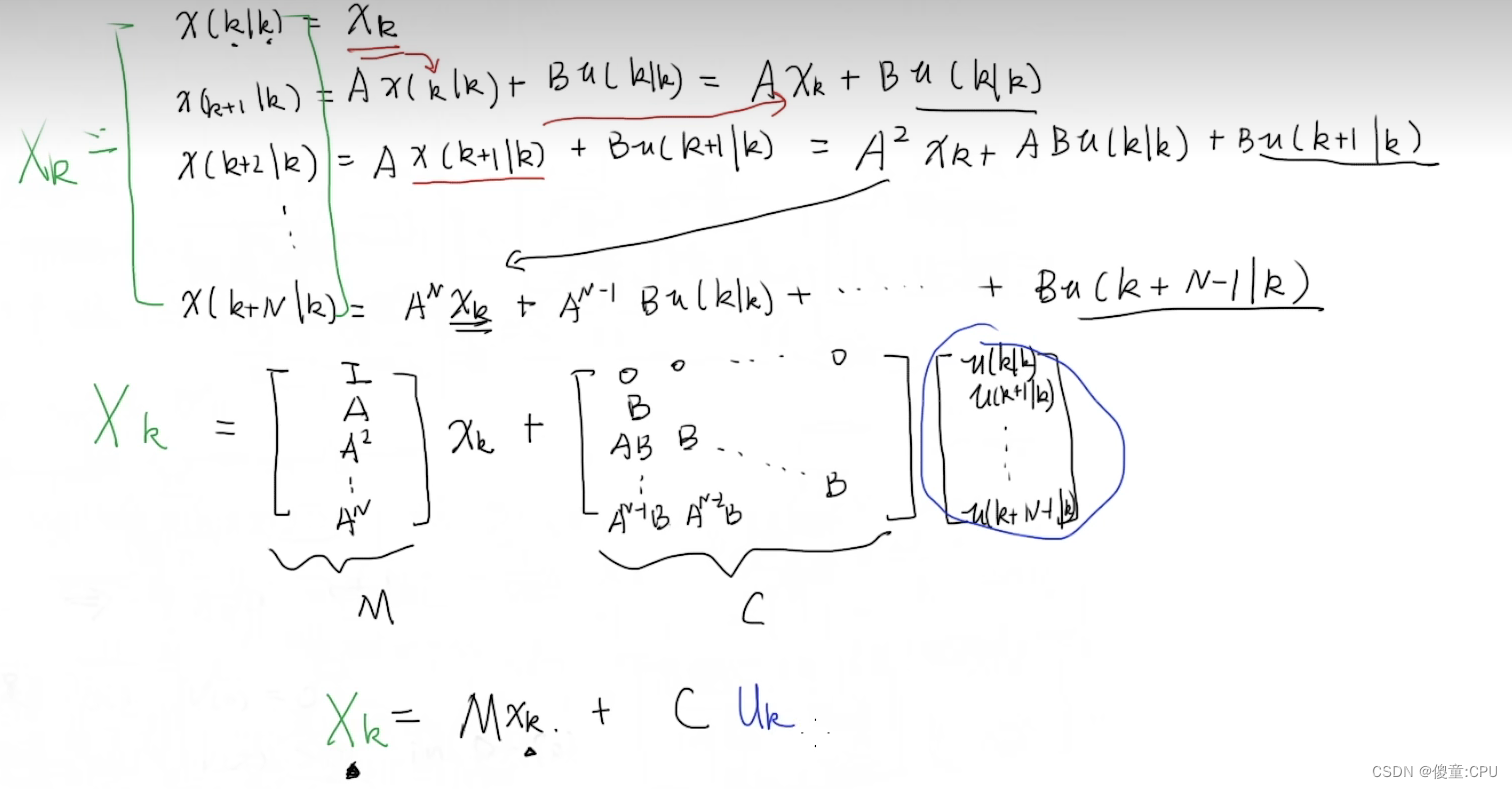 x(k|k) = xₖ
x(k+1|k) = A x(k|k) + B u(k|k) = A xₖ + B u(k|k)
Xₖ = x(k+2|k) = A x(k+1|k) + B u(k+1|k) = A² xₖ + A B u(k|k) + B u(k+1|k)
⋮
x(k+N|k) = Aᴺ xₖ + Aᴺ⁻¹ B u(k|k) + ...... + B u(k+N-1|k)
Xₖ = [ I A A² ⋮ Aᴺ ] xₖ + [ 0 0 ... 0
B
AB B ......
⋮ B
Aᴺ⁻¹B Aᴺ⁻²B ] [ u(k|k) u(k+1|k) ⋮ u(k+N-1|k) ]
M C
Xₖ = M xₖ + C Uₖ
CSDN @傻童:CPU